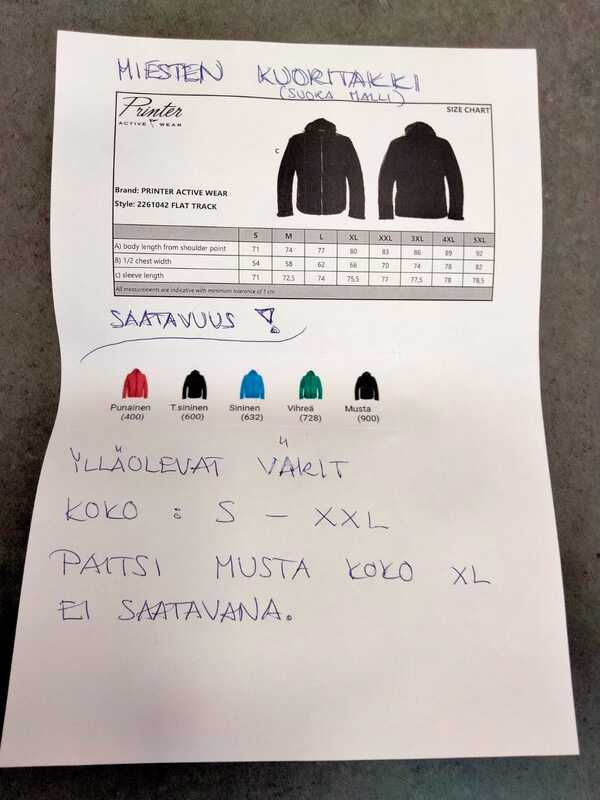 MIESTEN KUORITAKKI
(SUORA MALLI)
Printer
ACTIVE WEAR
SIZE CHART
C
Brand: PRINTER ACTIVE WEAR
Style: 2261042 FLAT TRACK
S M L XL XXL 3XL 4XL 5XL
A) body length from shoulder point 71 74 77 80 83 86 89 92
B) 1/2 chest width 54 58 62 66 70 74 78 82
c) sleeve length 71 72,5 74 75,5 77 77,5 78 78,5
All measurements are indicative with minimum tolerance of 1 cm
SAATAVUUS !
Punainen T.sininen Sininen Vihreä Musta
(400) (600) (632) (728) (900)
YLLÄOLEVAT VÄRIT
KOKO : S - XXL
PAITSI MUSTA KOKO XL
EI SAATAVANA.